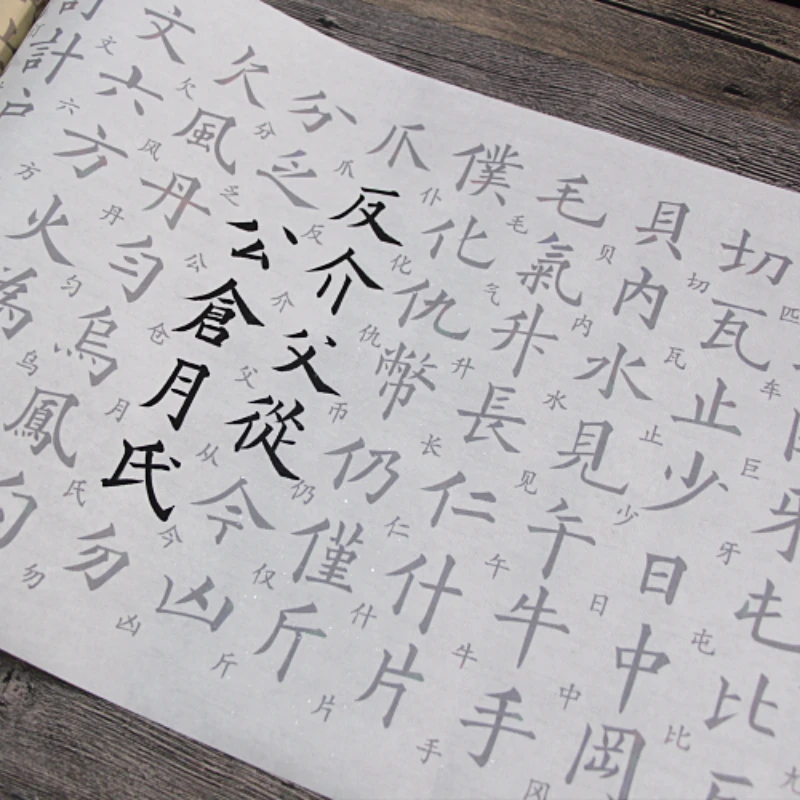 牙屯比
匹车巨牙屯比
切瓦止少日中岡
切瓦止少日中冈
貝內水見午牛手
贝内水见午牛手
毛氣升長仁什片
毛气升长仁什片
僕化仇幣仍僅斤
仆化仇币仍仅斤
爪反介父從今凶
爪反介父从今凶
分乏公倉月氏勿
分乏公仓月氏勿
欠風丹勻烏鳳
欠风丹匀乌
文六方火為
文六方
計